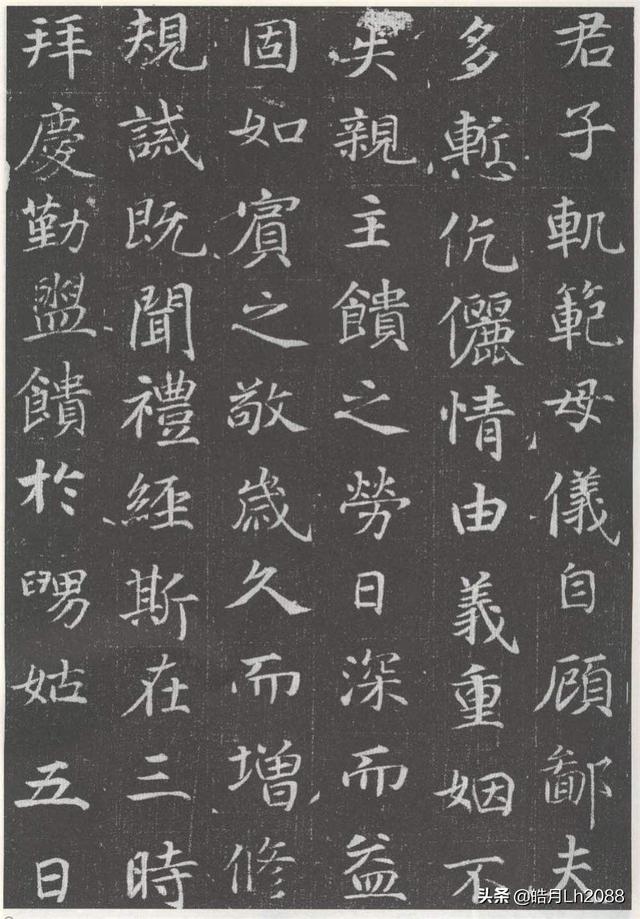 君子軌範母儀自顧鄙夫
多慙伉儷情由義重姻不
失親主饋之勞日深而益
固如賓之敬歲久而增修
規誡既聞禮經斯在三時
拜慶勤盥饋於舅姑五日
头条 @皓月Lh2088